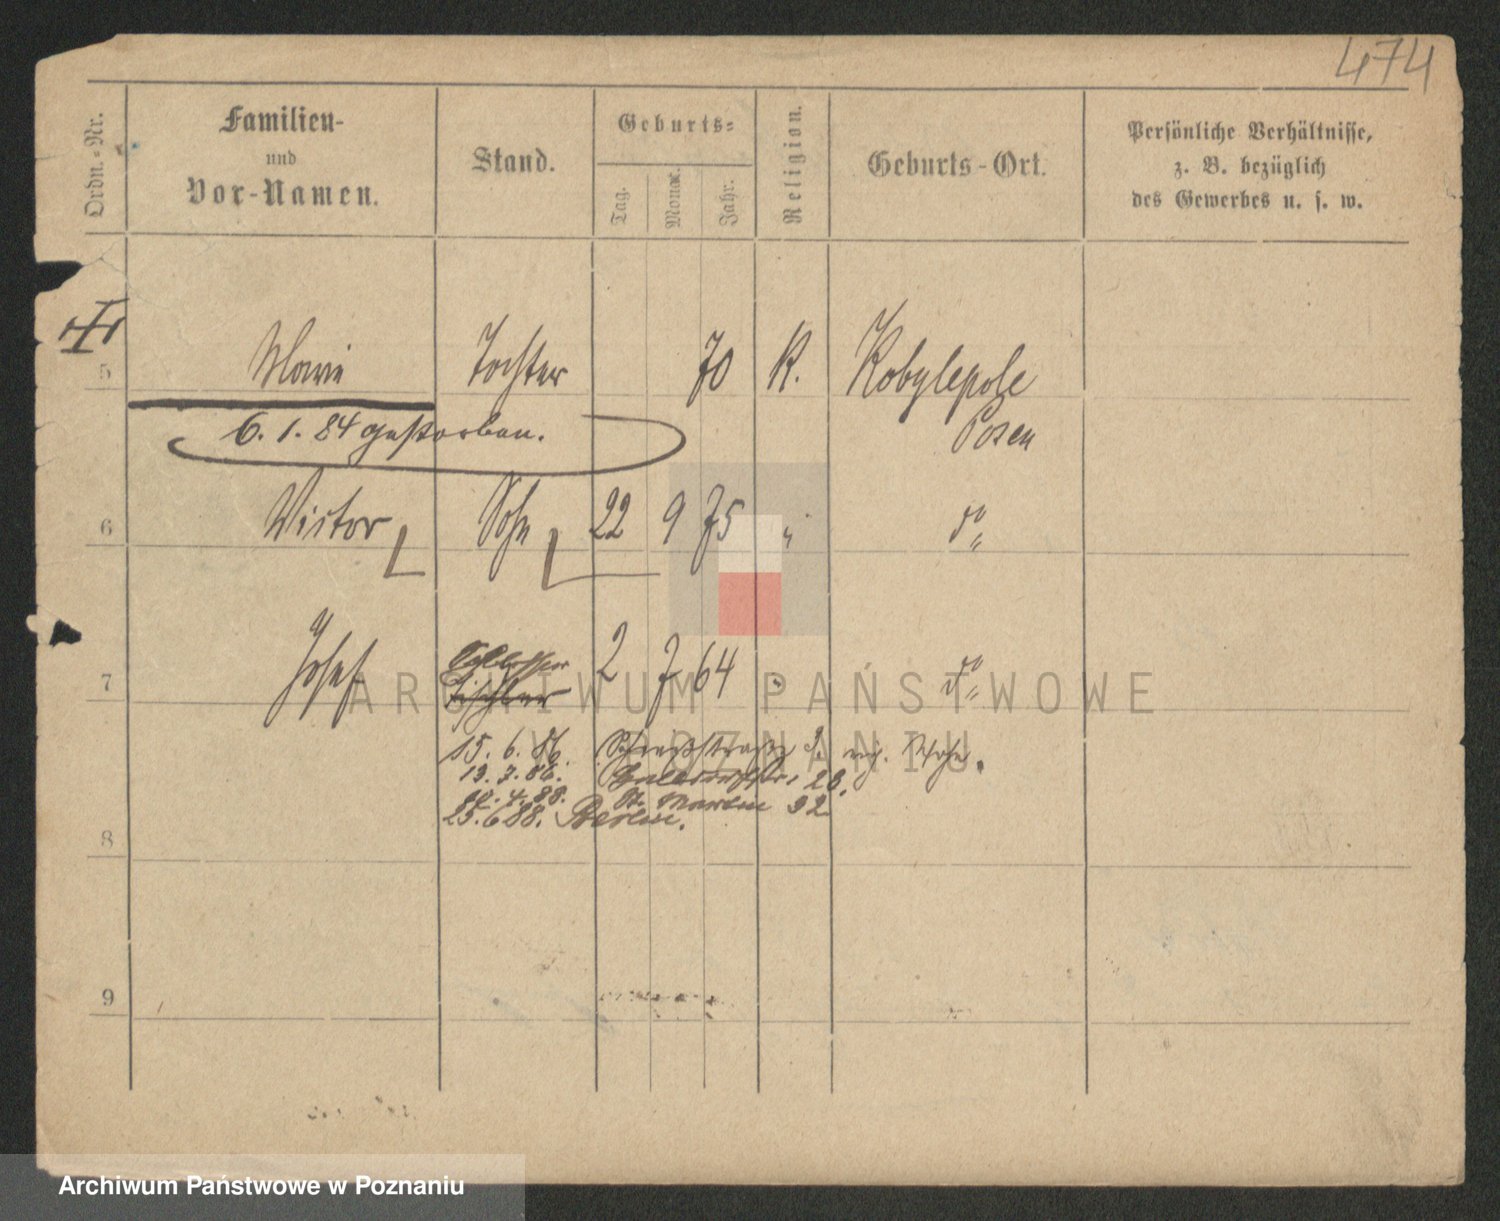 474
Ordn.-Nr.
Familien-
und
Vor-Namen.
Stand.
Geburts-
Tag.
Monat.
Jahr.
Religion.
Geburts-Ort.
Persönliche Verhältnisse,
z. B. bezüglich
des Gewerbes u. s. w.
5 Marie Tochter 70 K. Kobylepole
Posen
6. 1. 84 gestorben.
6 Victor Sohn 22 9 75 " do "
7 Josef Schlosser 2 7 64 " do "
Tischler
15. 6. 86.
13. 7. 86. 28.
4. 88. St. Martin 32
25. 6 88. Berlin.
8
9
ARCHIWUM PAŃSTWOWE
W POZNANIU
Archiwum Państwowe w Poznaniu